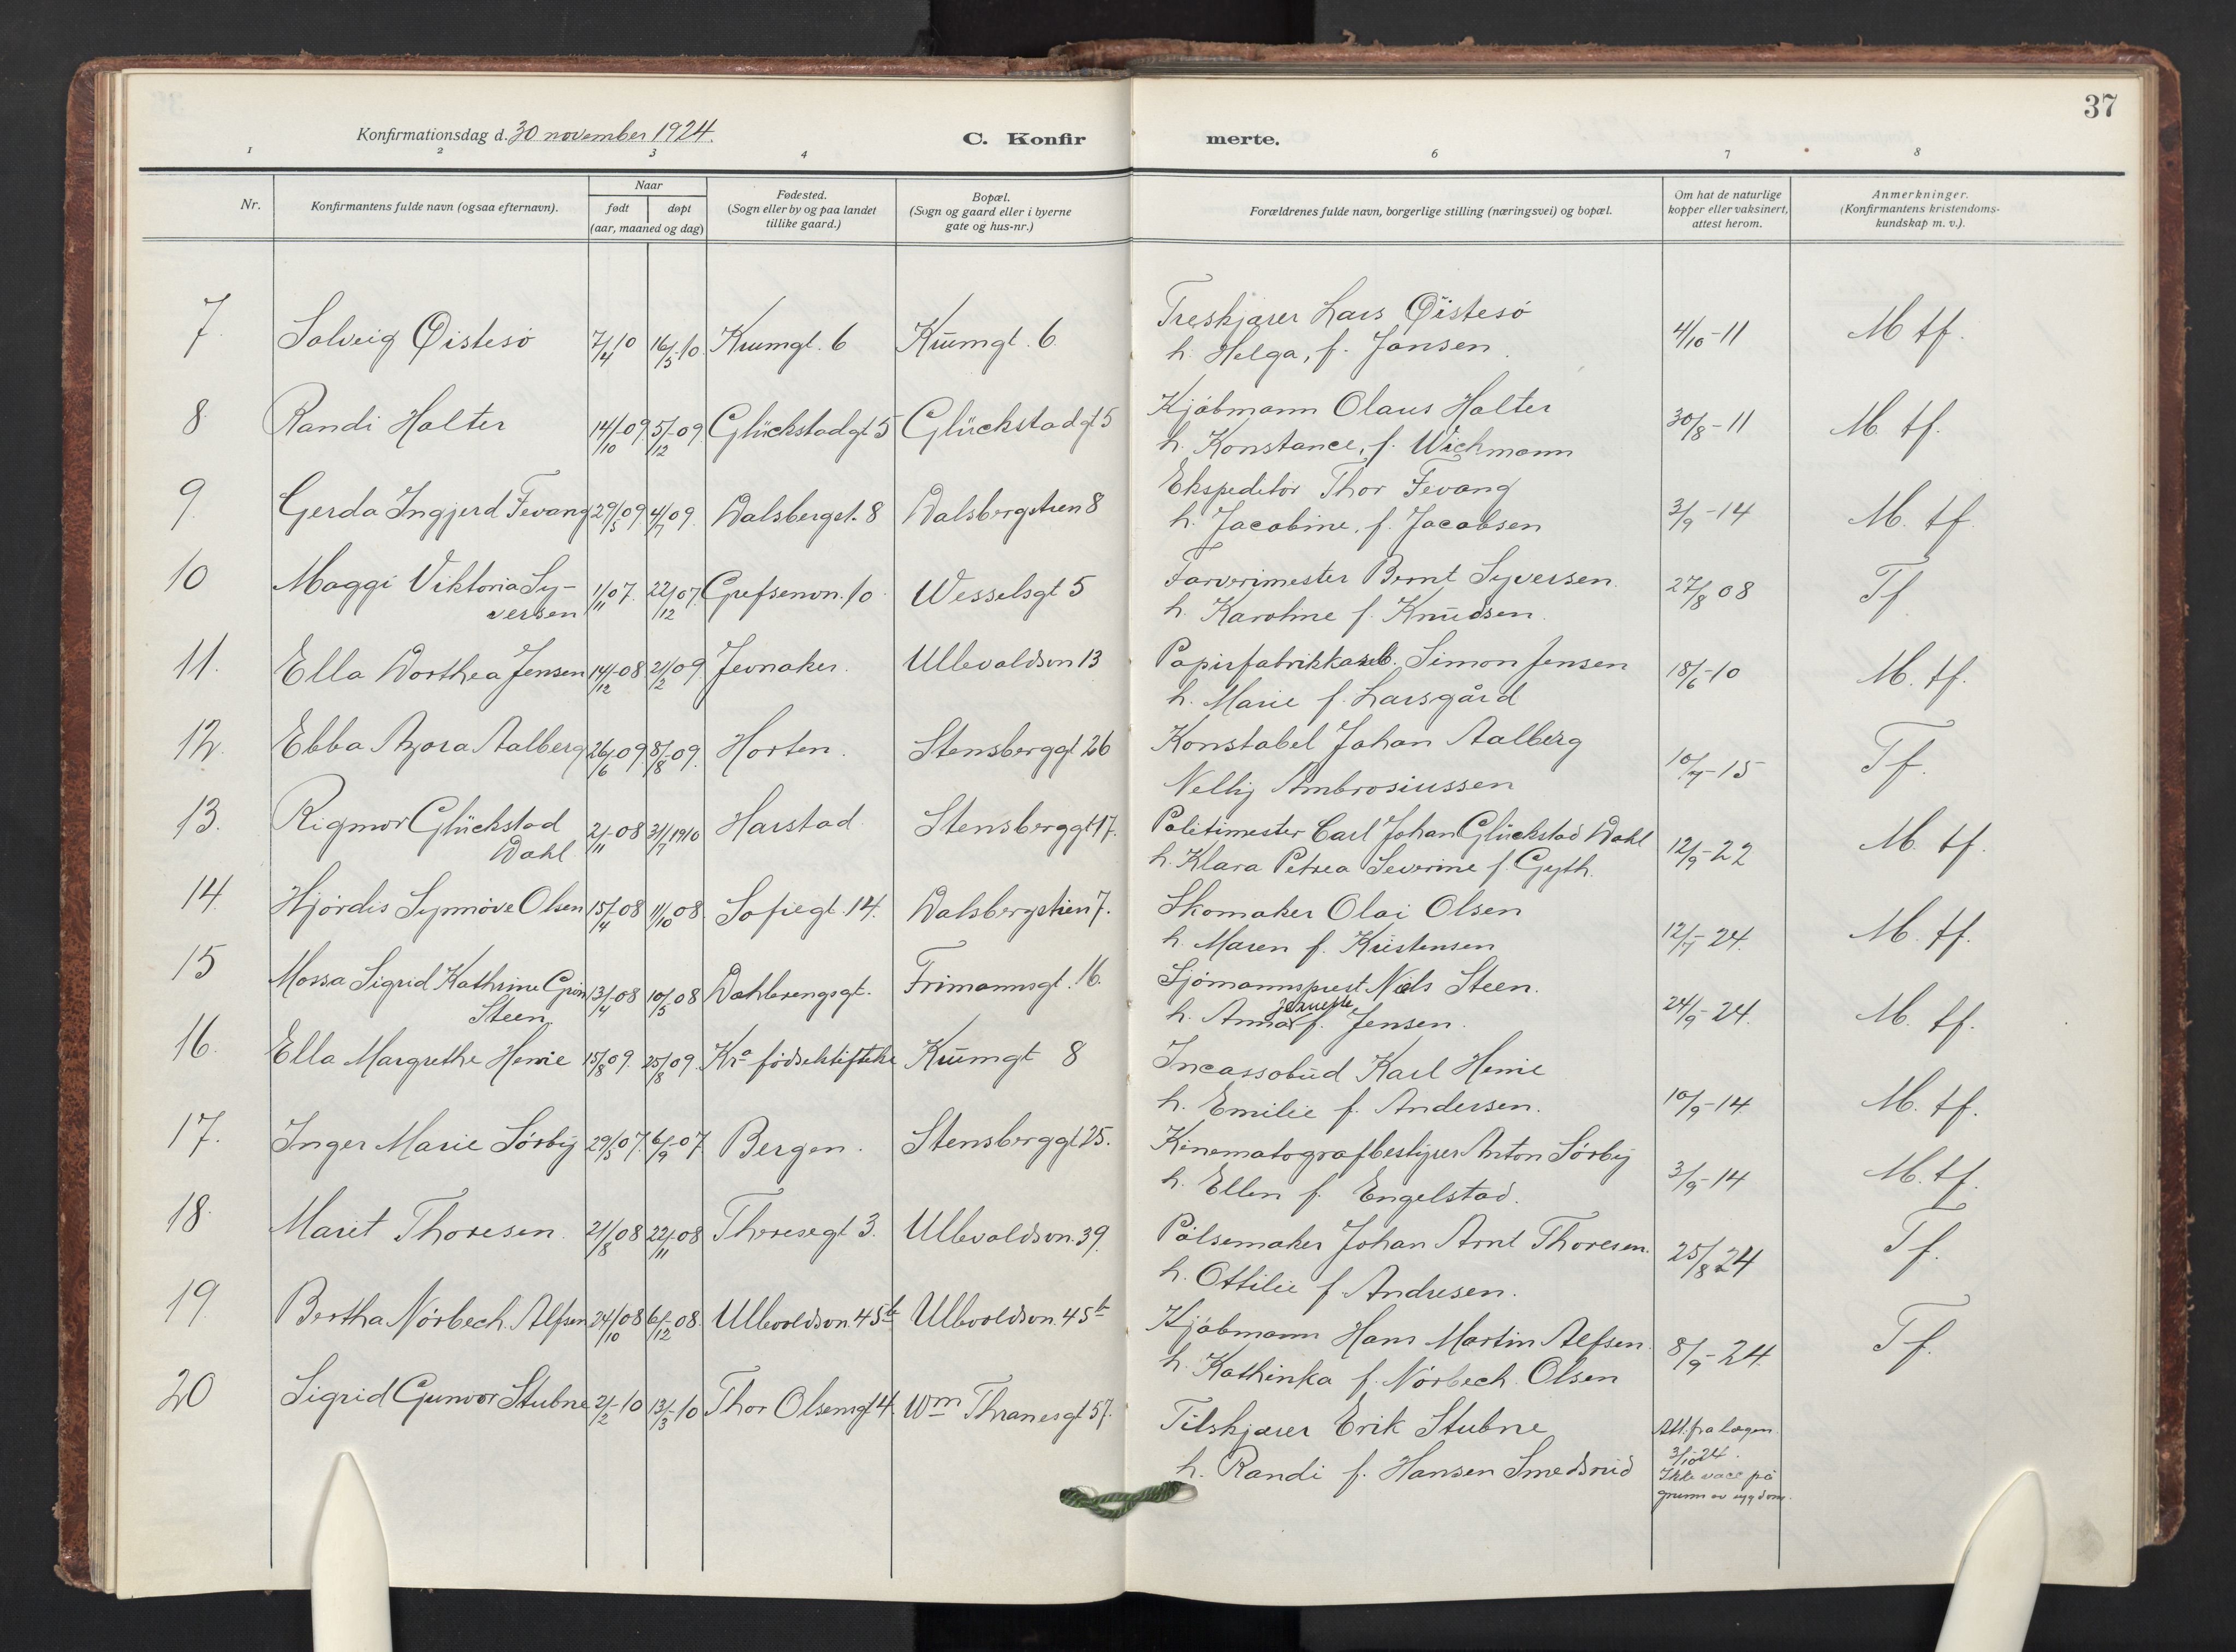 37
Konfirmationsdag d. 30 november 1924.
C. Konfirmerte.
1 2 3 4 6 7 8
Nr.
Konfirmantens fulde navn (ogsaa efternavn).
Naar
født døpt
(aar, maaned og dag)
Fødested.
(Sogn eller by og paa landet
tillike gaard.)
Bopæl.
(Sogn og gaard eller i byerne
gate og hus-nr.)
Forældrenes fulde navn, borgerlige stilling (næringsvei) og bopæl.
Om hat de naturlige
kopper eller vaksinert,
attest herom.
Anmerkninger.
(Konfirmantens kristendoms-
kundskap m. v.).
7. Solveig Øistesö 7/4 10 16/5-10 Krumgt. 6 Krumgt. 6 Treskjærer Lars Øistesö 4/10-11 M tf.
h. Helga, f. Jansen.
8. Randi Holter 14/10-09 5/12-09 Glückstadgt 5 Glückstadgt 5 Kjöbmann Olaus Holter 30/8-11 M. tf.
h. Konstance, f. Wichmann
9. Gerda Ingjerd Fevang 29/5 09 4/7 09. Dalsbergst. 8 Dalsbergstien 8 Ekspeditör Thor Fevang 3/9-14 M. tf.
h. Jacobine, f. Jacobsen
10 Maggi Viktoria Sy- 1/11 07. 22/12 07. Grefsenvn. 10 Wesselsgt 5 Farverimester Bernt Syversen. 27/8 08 Tf
versen h. Karoline f. Knudsen.
11. Ella Dorthea Jensen 14/12-08 21/2 09. Jevnaker. Ullevoldsvn 13 Papirfabrikkarb. Simon Jensen 18/6-10 M. tf.
h. Marie f. Larsgård
12. Ebba Azora Aalberg 26/6-09 8/8-09. Horten. Stensberggt 26 Konstabel Johan Aalberg 10/7-15 Tf.
Nelly Ambrosiussen
13. Rigmor Glückstad 2/11-08 31/7 1910 Harstad Stensberggt 17. Politimester Carl Johan Glückstad Dahl 12/9-22 M. tf.
Dahl h. Klara Petrea Severine f. Gyth.
14. Hjördis Synnöve Olsen 15/4-08 11/10 08. Sofiegt. 14. Dalsbergstien 7. Skomaker Olai Olsen 12/7-24. M. tf.
h. Maren f. Kristensen
15 Mossa Sigrid Kathrine Grön 13/4-08 10/5-08 Dahlbrengsgt. Frimannsgt. 16. Sjömannsprest Niels Steen. 24/9-24. M. tf.
Steen h. Anna f. Jensen.
16. Ella Margrethe Henie 15/8 09. 25/8 09. Kra födselsstiftelse Krumgt 8 Incassobud Karl Henie 10/9-14 M. tf.
h. Emilie f. Andersen.
17. Inger Marie Sörby 29/5 07. 6/9-07. Bergen. Stensberggt 25. Kinematografbestyrer Anton Sörby 3/9-14 M. tf.
h. Ellen f. Engelstad.
18. Marit Thoresen 21/8 08 22/11-08 Theresegt 3. Ullevoldsvn. 39. Pölsemaker Johan Arnt Thoresen. 25/8 24 Tf.
h. Ottilie f. Andresen.
19. Bertha Nörbech Alfsen 24/10 08 6/12-08. Ullevoldsvn. 45b Ullevoldsvn. 45b Kjöbmann Hans Martin Alfsen 8/9-24. Tf.
h. Kathinka f. Nörbech Olsen
20 Sigrid Gunvor Stubne 2/2-10 13/3-10 Thor Olsensgt 4. Wm Thranesgt 57. Tilskjærer Erik Stubne Att. fra lægen
h. Randi f. Hansen Smedsrud 3/10 24.
Ikke vacc på
grunn av sygdom.